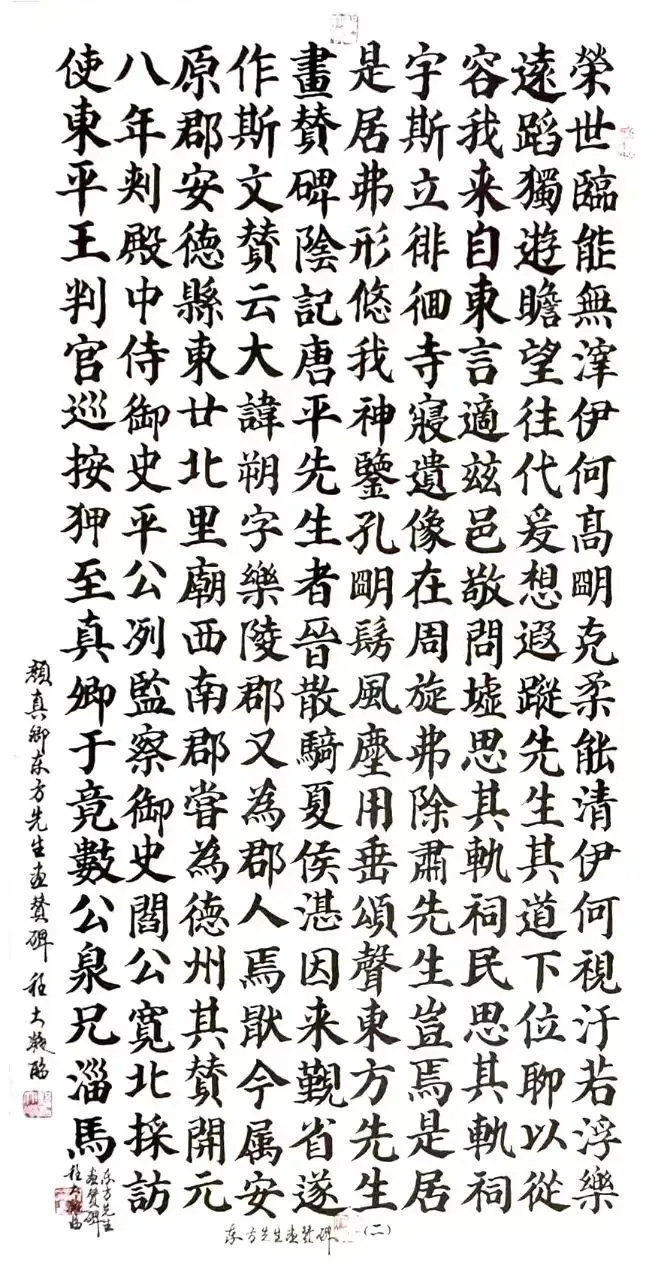 榮世臨能無滓伊何高明克柔能清伊何視汙若浮樂
遠蹈獨遊瞻望往代爰想遐蹤先生其道下位聊以從
容我来自東言適玆邑敬問墟思其軌祠民思其軌祠
宇斯立徘徊寺寢遺像在周旋弗除肅先生豈焉是居
是居弗形悠我神鑒孔明髣風塵用垂頌聲東方先生
畫贊碑陰記唐平先生者晉散騎夏侯湛因来覲省遂
作斯文贊云大諱朔字樂陵郡又為郡人焉猒今属安
原郡安德縣東廿北里廟西南郡嘗為德州其贊開元
八年刾殿中侍御史平公冽監察御史閻公寬北採訪
使東平王判官巡按狎至真卿于竟數公泉兄淄馬
顏真卿东方先生画赞碑 程大凝臨
东方先生
画赞碑
程大凝临
东方先生画赞碑(二)